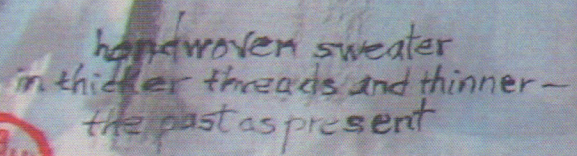 handwoven sweater
in thicker threads and thinner –
the past as present